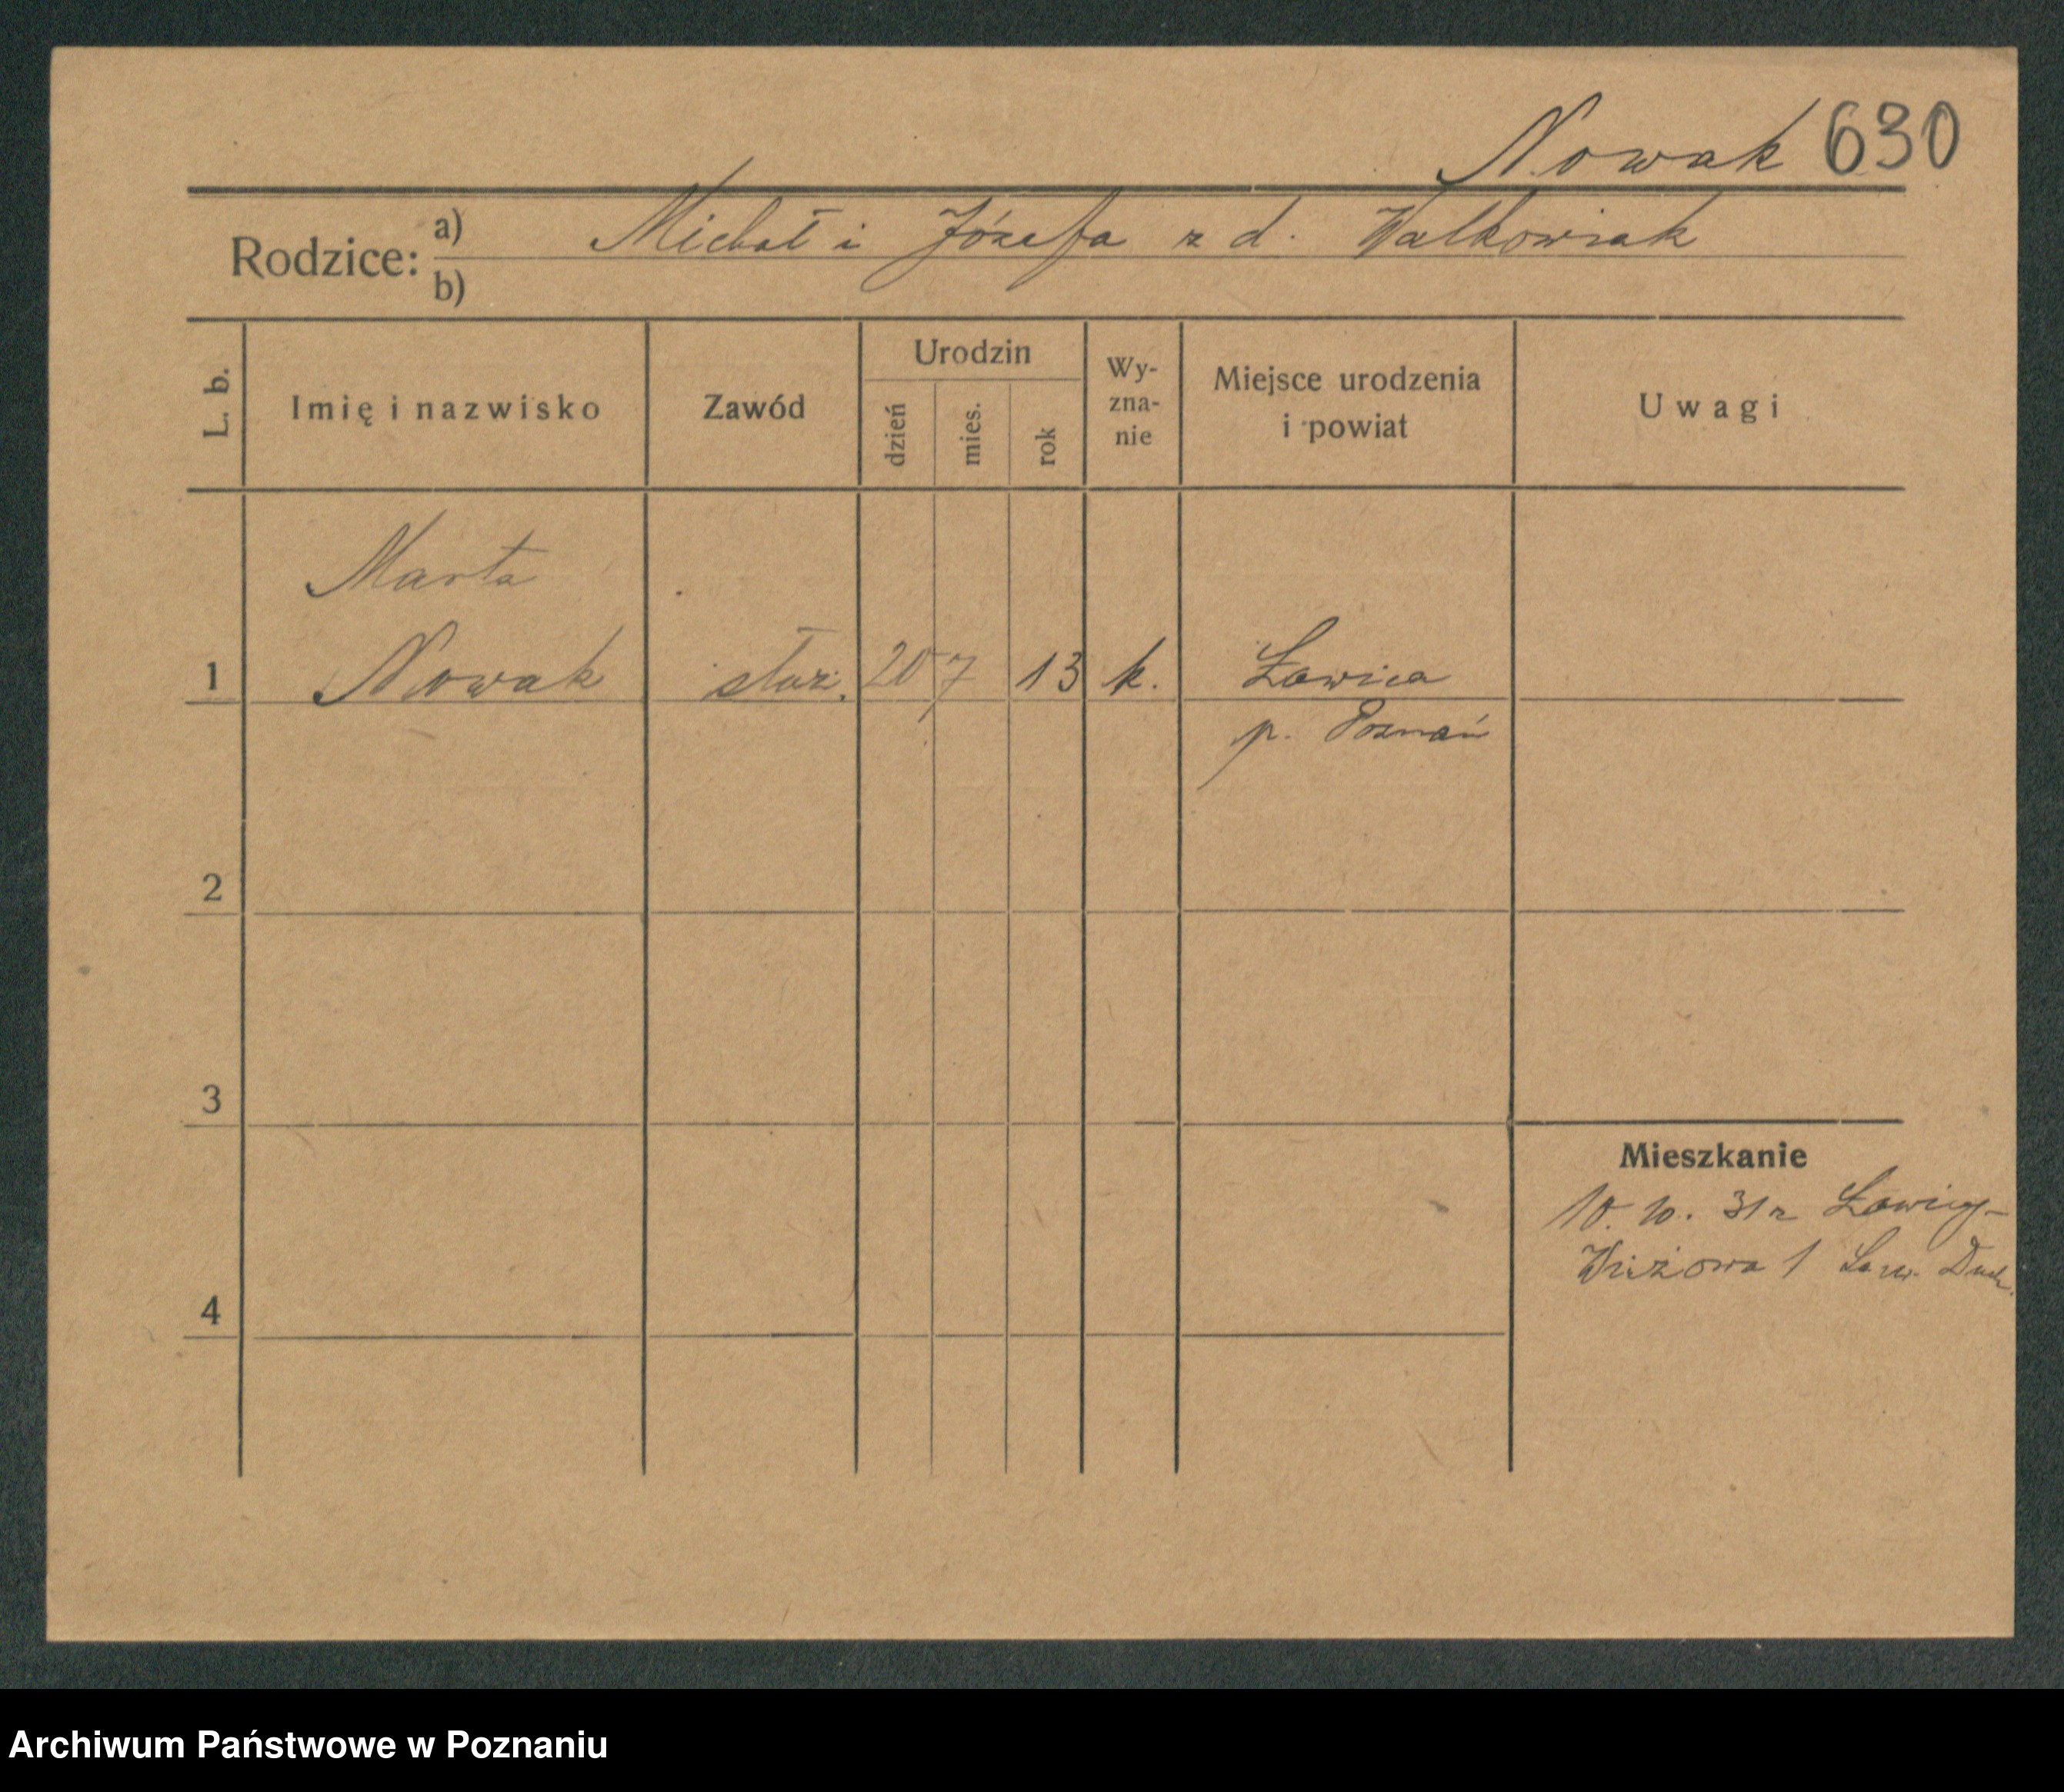 Nowak 630
Rodzice: a) Michał i Józefa z d. Walkowiak
b)
L. b.
Imię i nazwisko
Zawód
Urodzin
dzień
mies.
rok
Wy-
zna-
nie
Miejsce urodzenia
i powiat
Uwagi
Marta
1 Nowak służ. 20 7 13 k. Ławica
p. Poznań
2
3
4
Mieszkanie
10. 10. 31 r Ławicy-
1
Archiwum Państwowe w Poznaniu